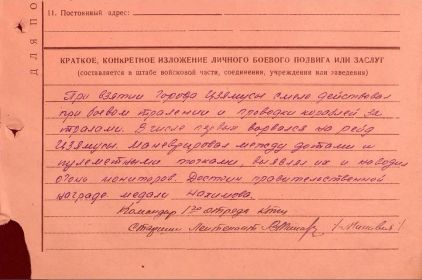 11. Постоянный адрес:
ДЛЯ ПО
КРАТКОЕ, КОНКРЕТНОЕ ИЗЛОЖЕНИЕ ЛИЧНОГО БОЕВОГО ПОДВИГА ИЛИ ЗАСЛУГ
(составляется в штабе войсковой части, соединения, учреждения или заведения)
При взятии города Цзямусы смело действовал
при боевом тралении и проводки кораблей за
тралами. В числе первых ворвался на рейд
Цзямусы. Маневрировал между дотами и
пулеметными точками, выявлял их и наводил
огонь мониторов. Достоин правительственной
награде медали Нахимова.
Командир 1го отряда
Старший Лейтенант